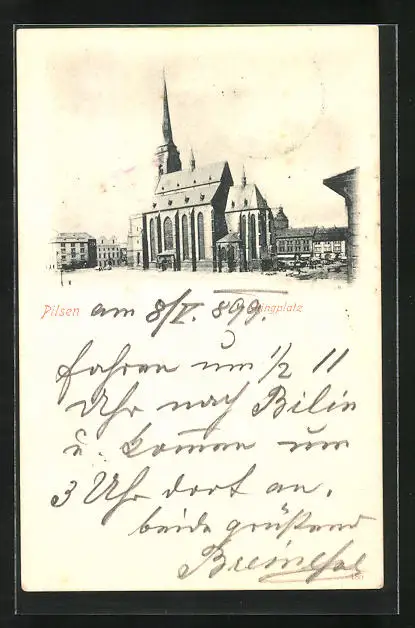 Pilsen am 8/V. 899. Ringplatz
fahren um 1/2 11
Uhr nach Bilin
u. kommen um
3 Uhr dort an.
beide grüßend
180